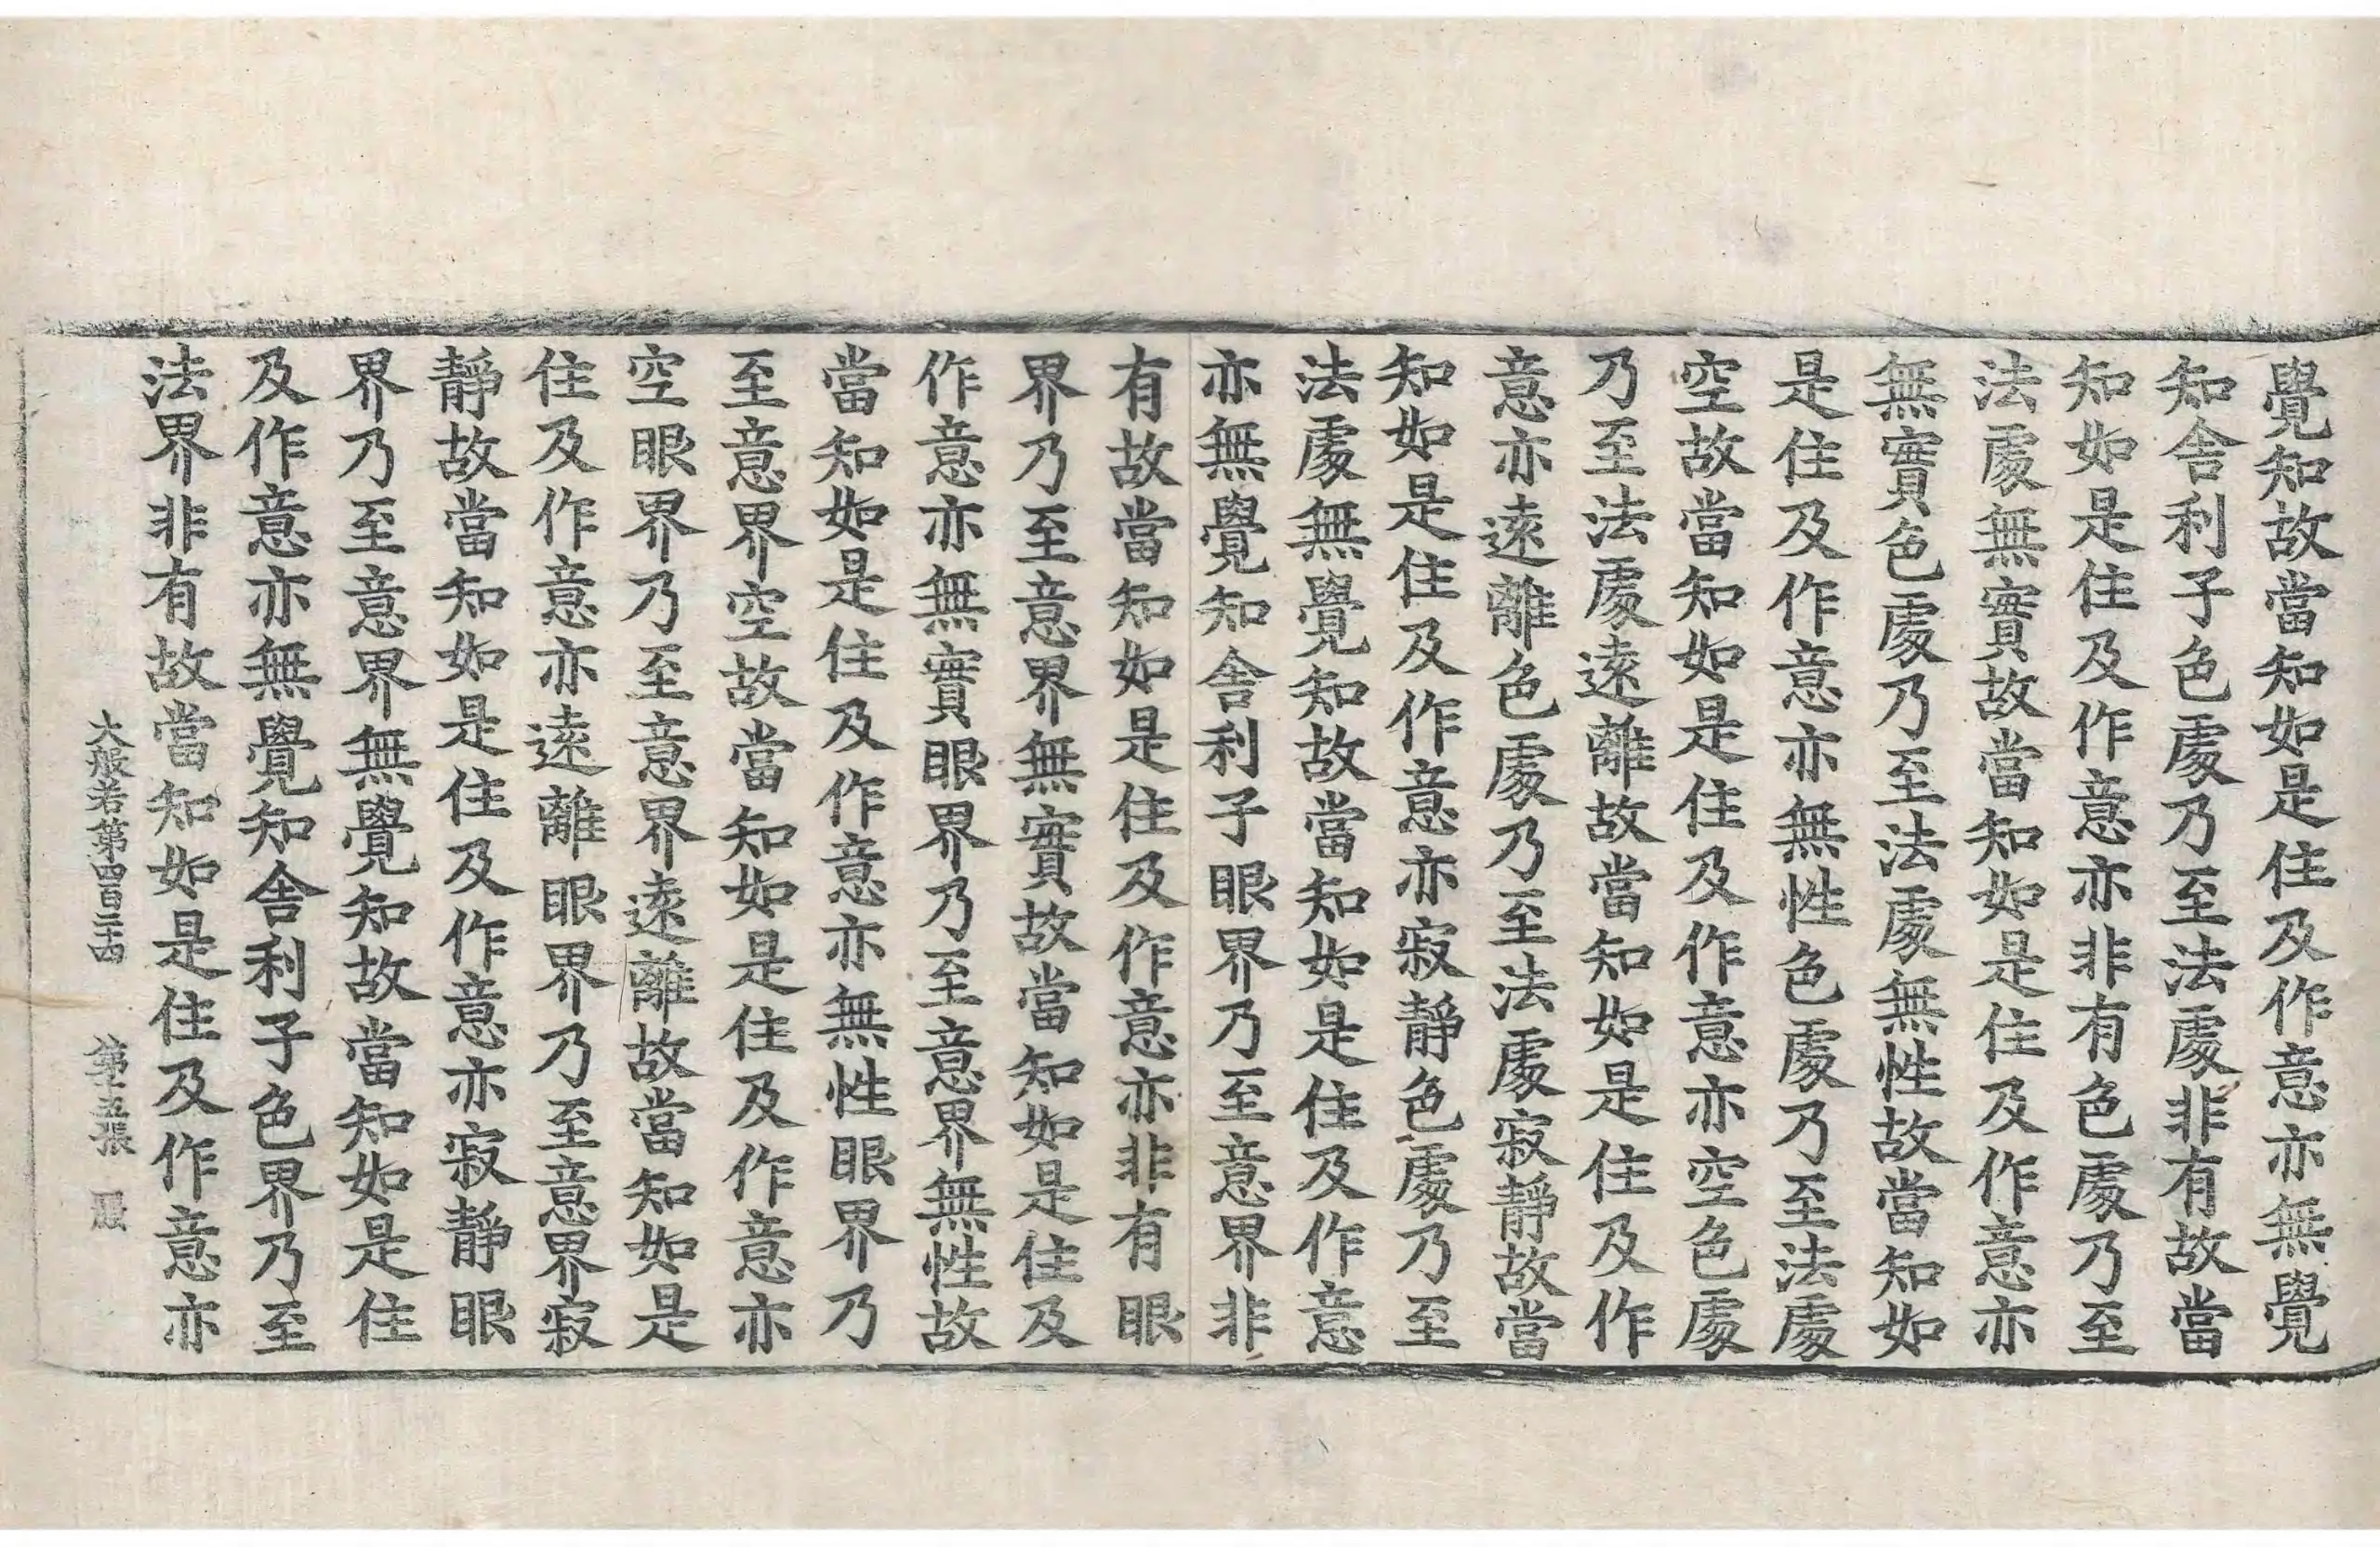 覺知故當知如是住及作意亦無覺
知舍利子色處乃至法處非有故當
知如是住及作意亦非有色處乃至
法處無實故當知如是住及作意亦
無實色處乃至法處無性故當知如
是住及作意亦無性色處乃至法處
空故當知如是住及作意亦空色處
乃至法處遠離故當知如是住及作
意亦遠離色處乃至法處寂靜故當
知如是住及作意亦寂靜色處乃至
法處無覺知故當知如是住及作意
亦無覺知舍利子眼界乃至意界非
有故當知如是住及作意亦非有眼
界乃至意界無實故當知如是住及
作意亦無實眼界乃至意界無性故
當知如是住及作意亦無性眼界乃
至意界空故當知如是住及作意亦
空眼界乃至意界遠離故當知如是
住及作意亦遠離眼界乃至意界寂
靜故當知如是住及作意亦寂靜眼
界乃至意界無覺知故當知如是住
及作意亦無覺知舍利子色界乃至
法界非有故當知如是住及作意亦
大般若第四百二十四 第十五張 麗